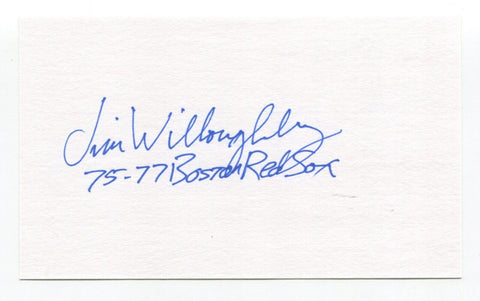 Jim Willoughby
75-77 Boston Red Sox